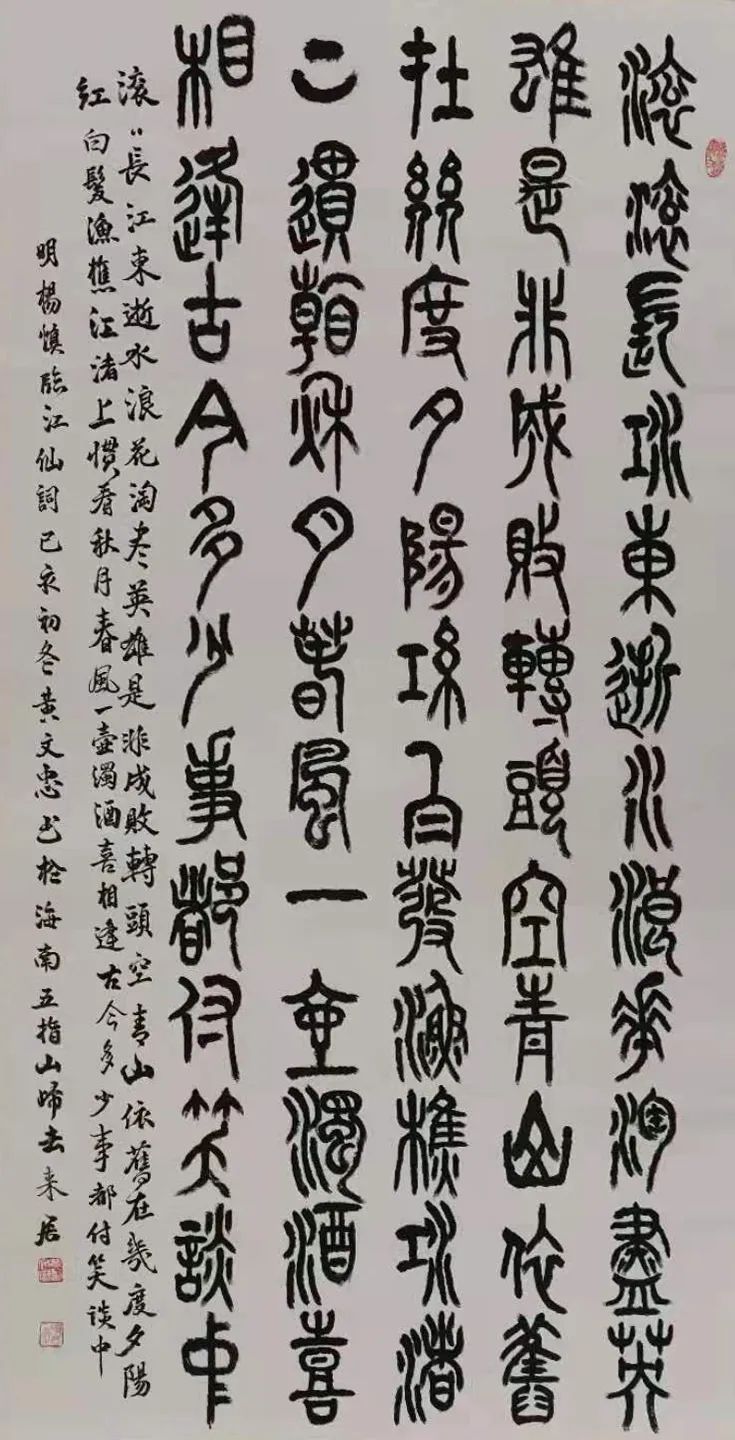 滾滾長江東逝水浪花淘盡英
雄是非成敗轉頭空青山依舊
在幾度夕陽紅白發漁樵江渚
上慣看秋月春風一壺濁酒喜
相逢古今多少事都付笑談中
滚〻長江東逝水浪花淘尽英雄是非成敗轉頭空青山依舊在幾度夕陽
红白髮漁樵江渚上惯看秋月春風一壺濁酒喜相逢古今多少事都付笑谈中
明楊慎臨江仙詞 己亥初冬黄文忠书於海南五指山歸去来居